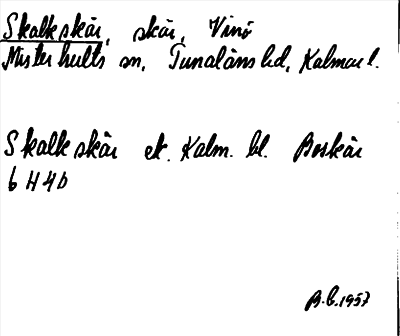 Skalkskär, skär, Vinö
Misterhults sn, Tunaläns hd, Kalmar l.
Skalkskär ek. Kalm. bl. Boskär
6 H 4 b
B.E. 1957